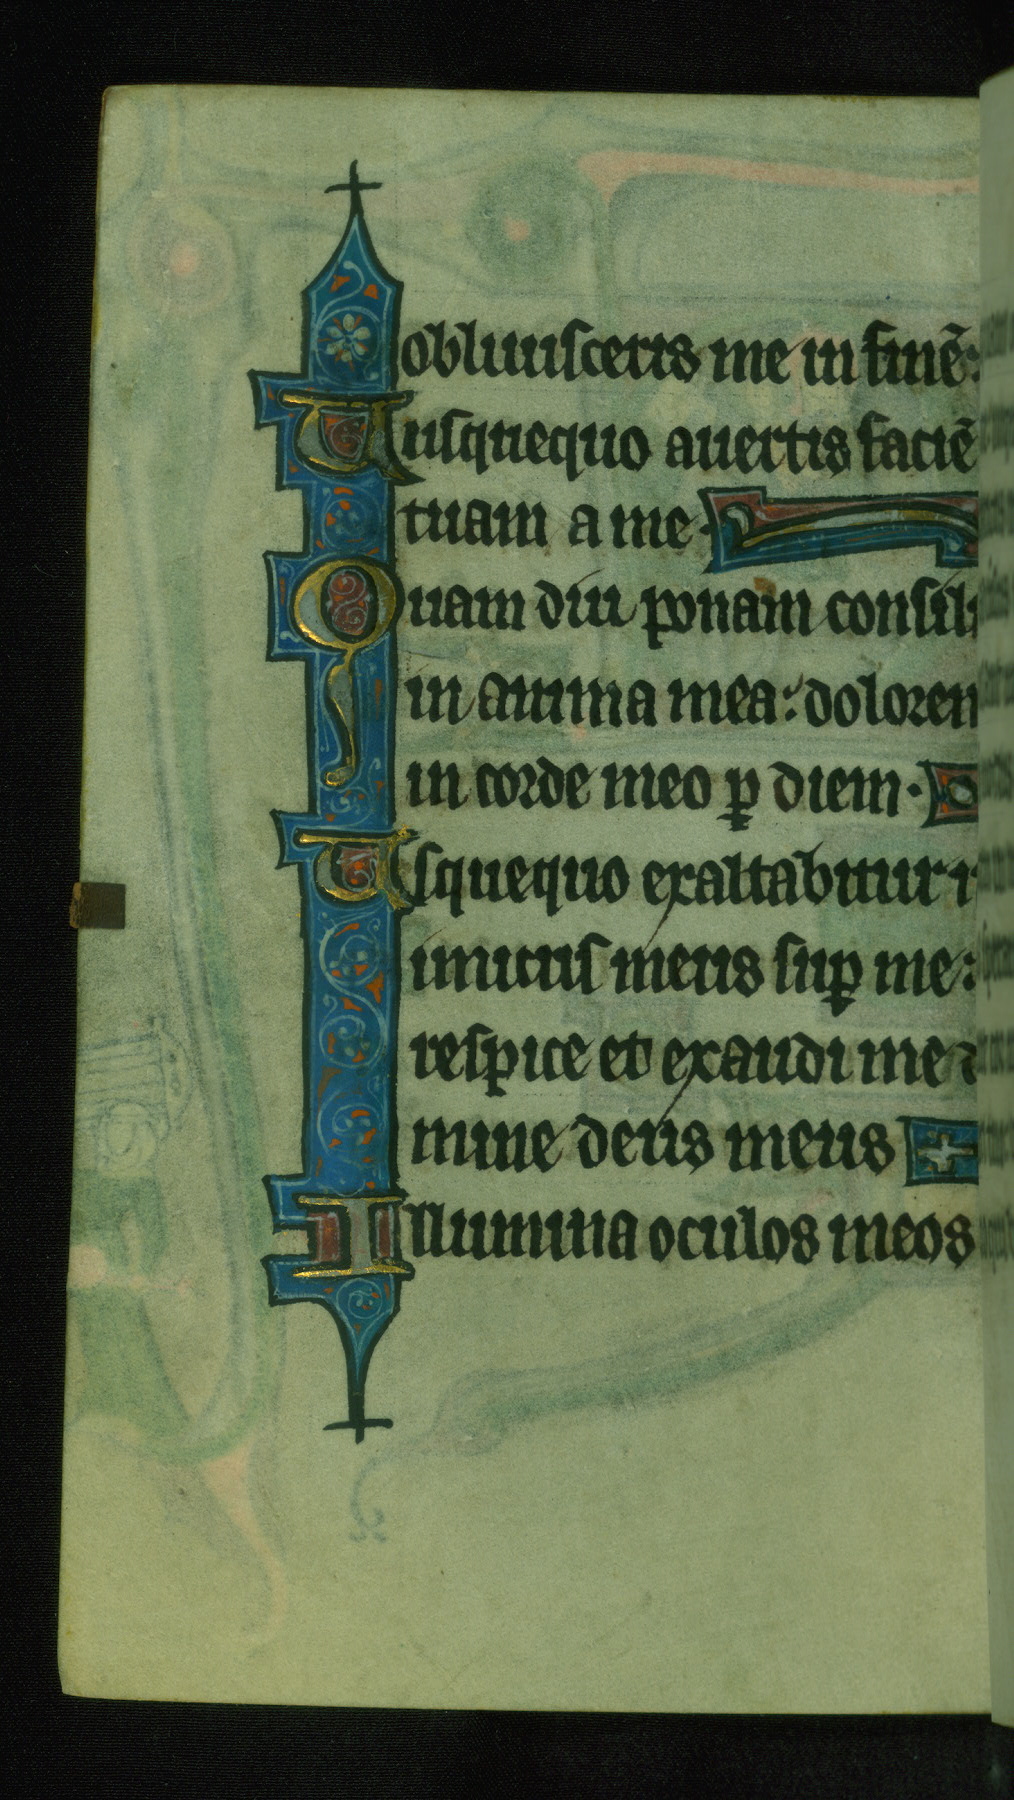 obliuisceris me in finē:
Uusquequo auertis faciē
tuam a me·
Quam diu ponam consili
in anima mea: dolorem
in corde meo ꝑ diem·
Usquequo exaltabitur i
nimicus meus suꝑ me:
respice et exaudi me d
mine deus meus
Illumina oculos meos